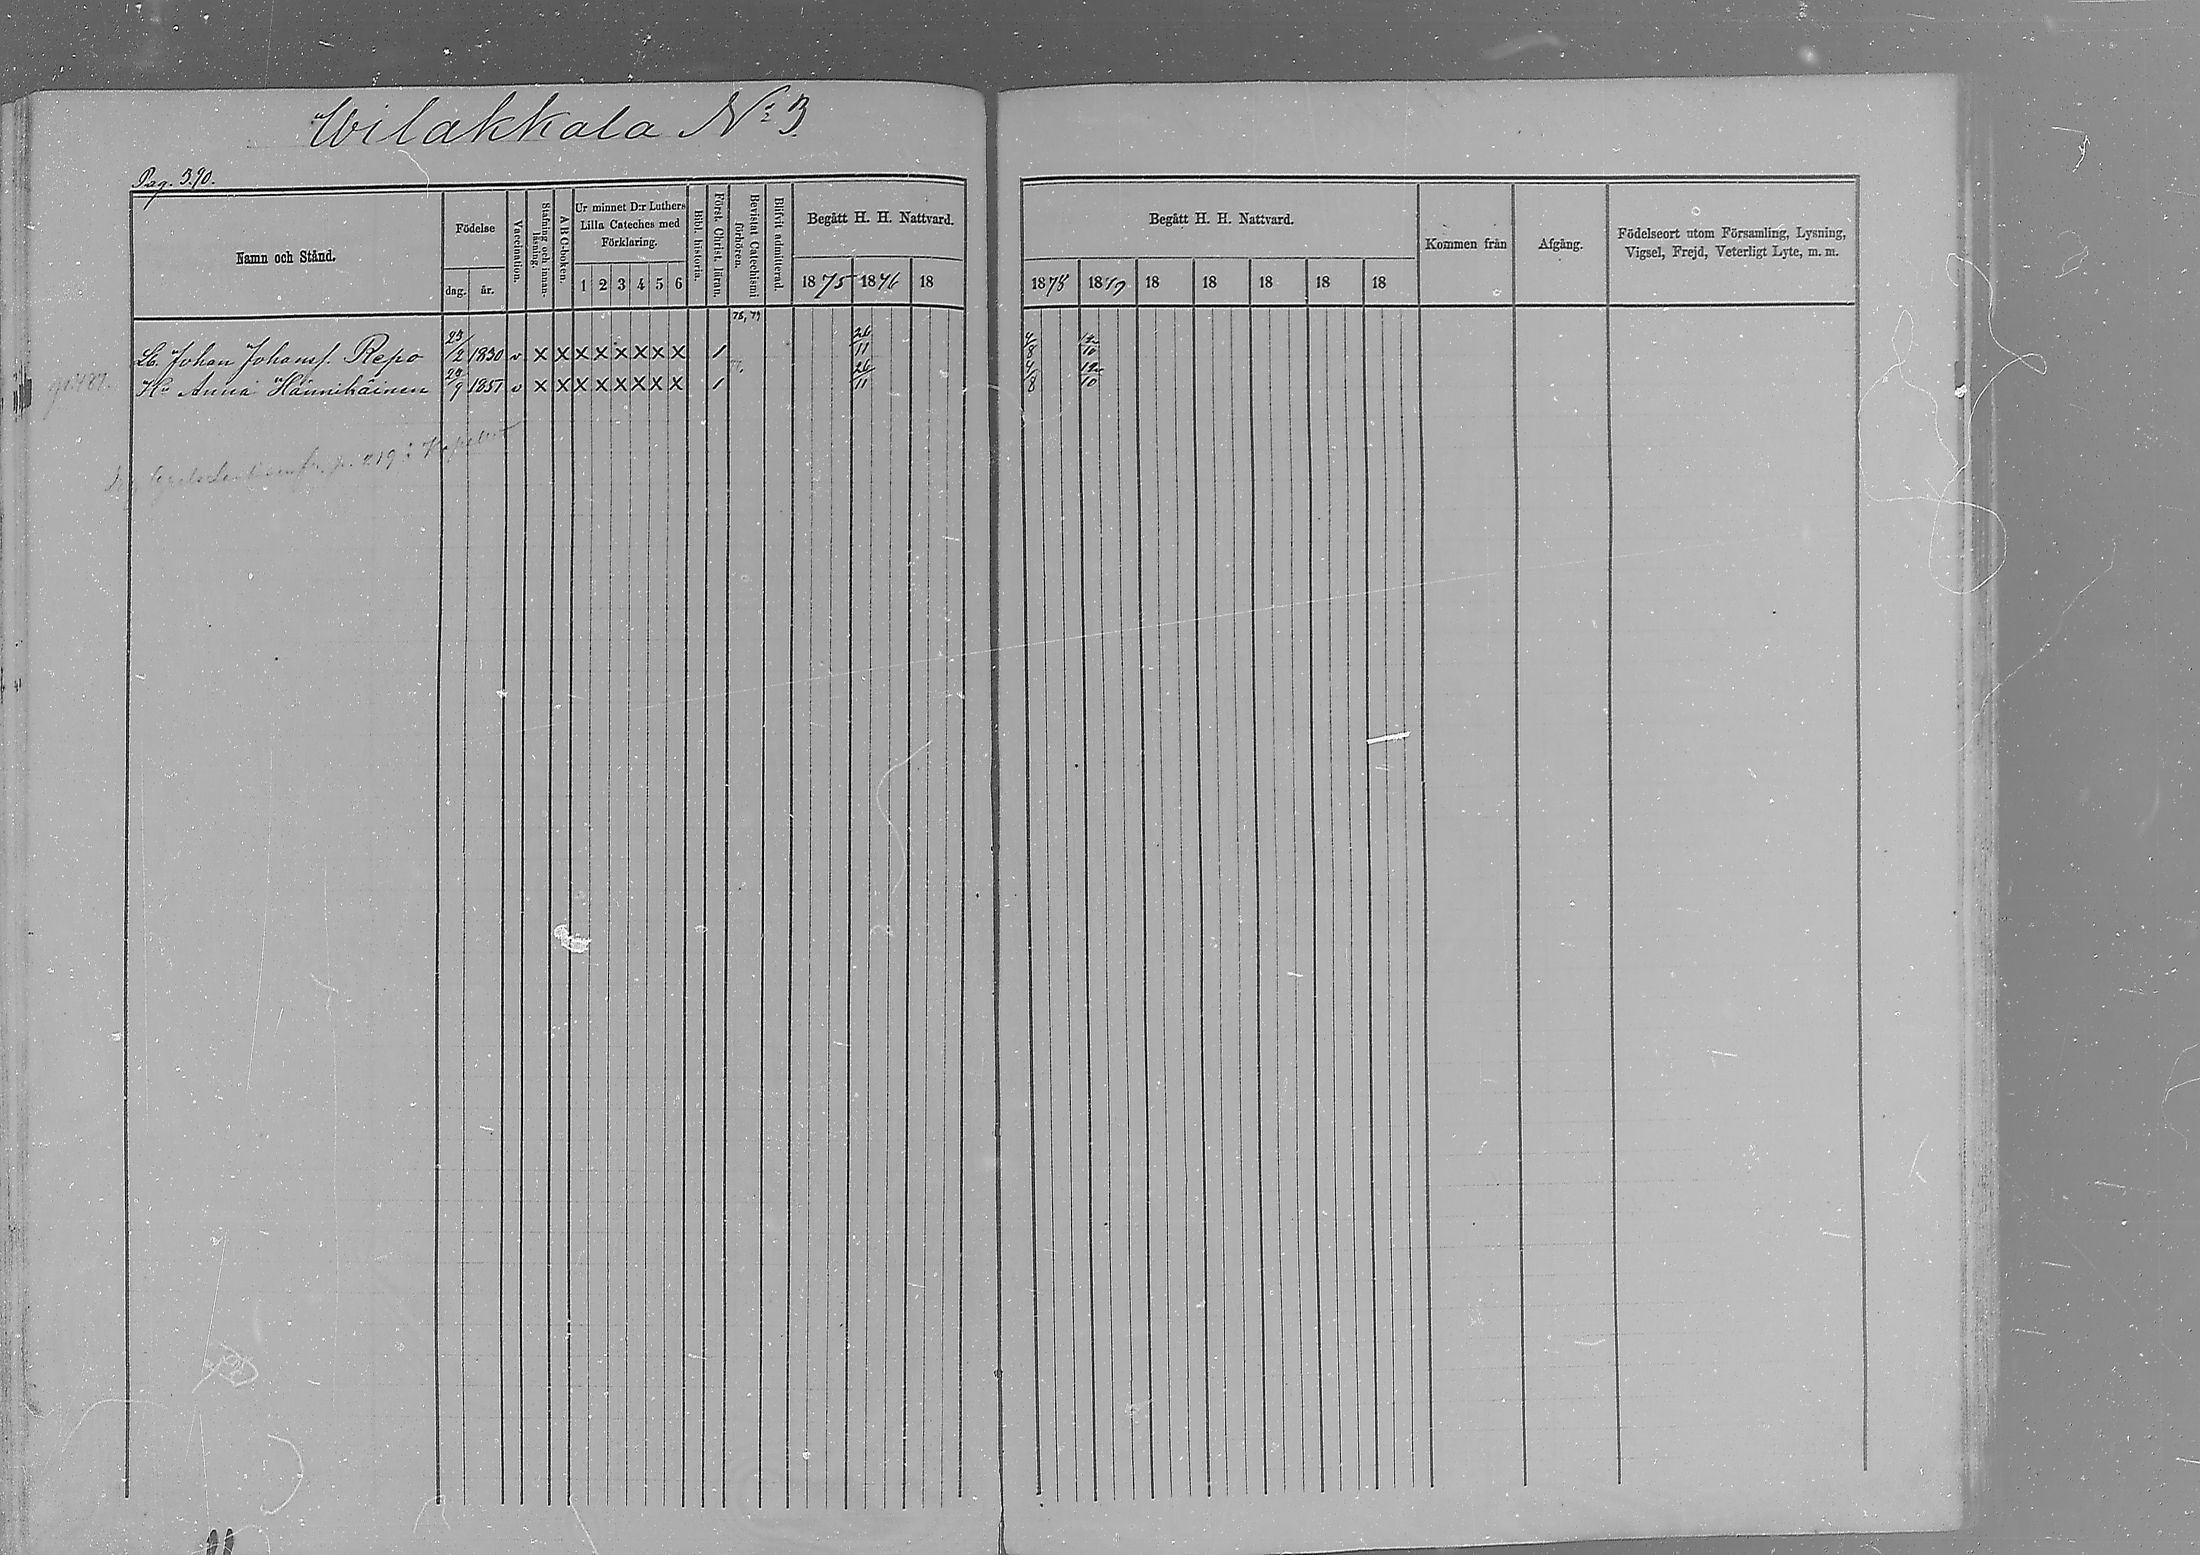 Wilakkala No 3
Pag. 390.
Namn och Stånd.
Födelse
dag. år.
Vaccination.
Stafning och innan-läsning.
A B C-boken.
Ur minnet D:r Luthers
Lilla Cateches med
Förklaring.
1 2 3 4 5 6
Bibl. historia.
Först. Christ. läran.
Bevistat Catechismi förhören.
Blifvit admitterad.
Begått H. H. Nattvard.
1875 1876 18
Begått H. H. Nattvard.
1878 1879 18 18 18 18 18
Kommen från
Afgång.
Födelseort utom Församling, Lysning,
Vigsel, Frejd, Veterligt Lyte, m. m.
78, 79
Johan Johanss. Repo 23/2 1830 v X X X X X X X X 1 26/11 4/8 12/10
Hu Anna Hännikäinen 29/9 1851 v X X X X X X X X 1 26/11 4/8 12/10